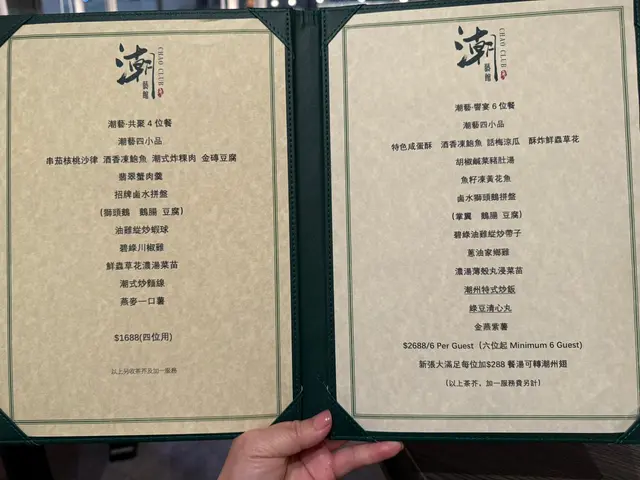 潮
CHAO CLUB
藝館
潮藝·共聚 4 位餐
潮藝四小品
串茄核桃沙律 酒香凍鮑魚 潮式炸粿肉 金磚豆腐
翡翠蟹肉羹
招牌鹵水拼盤
(獅頭鵝 鵝腸 豆腐)
油雞㙡炒蝦球
碧綠川椒雞
鮮蟲草花濃湯菜苗
潮式炒麵線
燕麥一口薯
$1688(四位用)
以上另收茶芥及加一服務
潮
CHAO CLUB
藝館
潮藝·饗宴 6 位餐
潮藝四小品
特色咸蛋酥 酒香凍鮑魚 話梅涼瓜 酥炸鮮蟲草花
胡椒鹹菜豬肚湯
魚籽凍黃花魚
鹵水獅頭鵝拼盤
(掌翼 鵝腸 豆腐)
碧綠油雞㙡炒帶子
蔥油家鄉雞
濃湯薄殼丸浸菜苗
潮州特式炒飯
綠豆清心丸
金燕紫薯
$2688/6 Per Guest (六位起 Minimum 6 Guest)
新張大滿足每位加$288 餐湯可轉潮州翅
(以上茶芥，加一服務費另計)